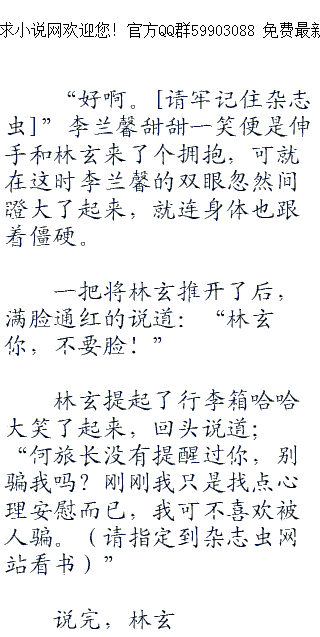 求小说网欢迎您！官方QQ群59903088 免费最新
“好啊。[请牢记住杂志
虫]”李兰馨甜甜一笑便是伸
手和林玄来了个拥抱，可就
在这时李兰馨的双眼忽然间
瞪大了起来，就连身体也跟
着僵硬。
一把将林玄推开了后，
满脸通红的说道：“林玄
你，不要脸！”
林玄提起了行李箱哈哈
大笑了起来，回头说道；
“何旅长没有提醒过你，别
骗我吗？刚刚我只是找点心
理安慰而已，我可不喜欢被
人骗。（请指定到杂志虫网
站看书）”
说完，林玄